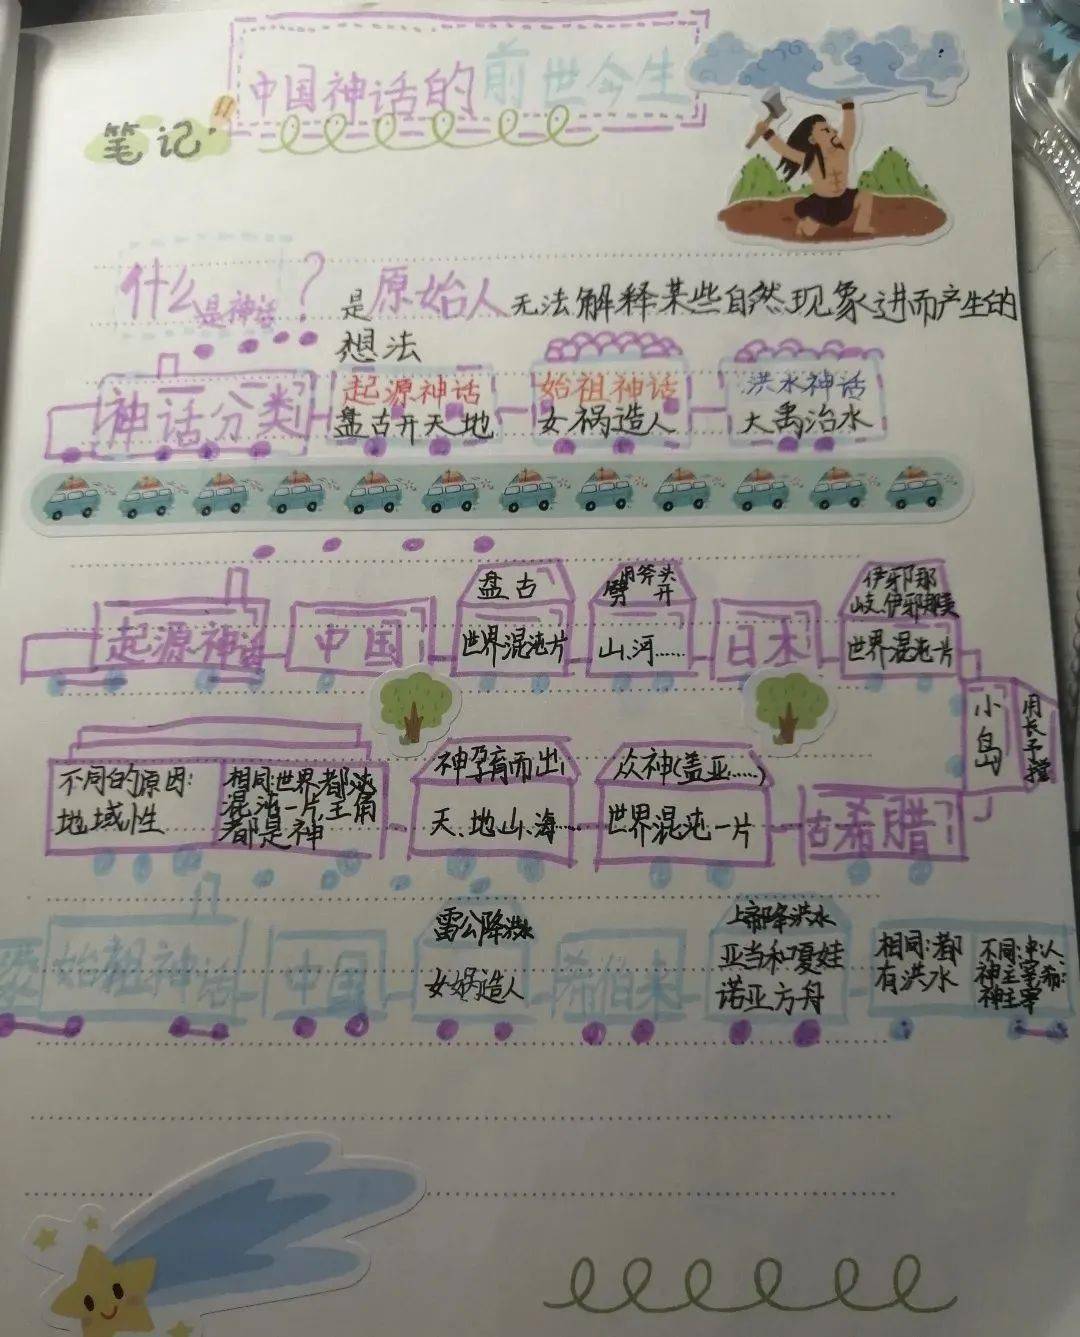 中国神话的前世今生
笔记
什么是神话？是原始人无法解释某些自然现象进而产生的
想法
神话分类
起源神话
盘古开天地
始祖神话
女祸造人
洪水神话
大禹治水
起源神话
中国
盘古
世界混沌片
用斧头
劈开
山、河……
日本
伊邪那
岐、伊邪那美
世界混沌一片
小岛
用长矛搅
古希腊
众神(盖亚……)
世界混沌一片
神孕育而出
天、地山、海……
相同:世界都
混沌一片,主角
都是神
不同的原因:
地域性
始祖神话
中国
雷公降洪水
女娲造人
希伯来
上帝降洪水
亚当和夏娃
诺亚方舟
相同:都
有洪水
不同:中:人
神主宰希:
神主宰